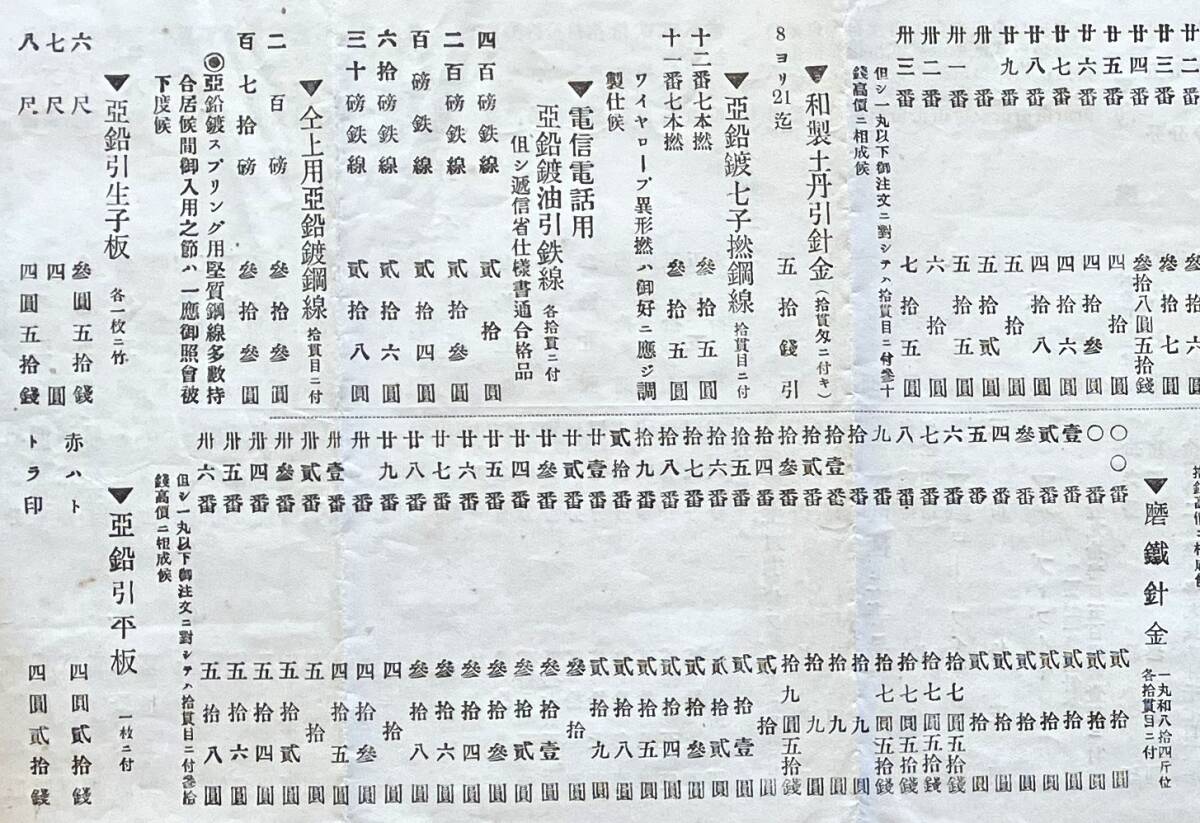 廿二番 參拾六圓
廿三番 參拾七圓
廿四番 參拾八圓五拾錢
廿五番 四拾圓
廿六番 四拾參圓
廿七番 四拾六圓
廿八番 四拾八圓
廿九番 五拾圓
卅番 五拾貳圓
卅一番 五拾五圓
卅二番 六拾圓
卅三番 七拾五圓
但シ一丸以下御注文ニ對シテハ拾貫目ニ付參十
錢高價ニ相成候
▼和製土丹引針金(拾貫匁ニ付キ)
8ヨリ21迄 五拾錢引
▼亞鉛鍍七子撚鋼線 拾貫目ニ付
十二番七本撚 參拾五圓
十一番七本撚 參拾五圓
ワイヤロープ異形撚ハ御好ニ應ジ調
製仕候
▼電信電話用
亞鉛鍍油引鉄線 各拾貫ニ付
但シ遞信省仕様書通合格品
四百磅鉄線 貳拾圓
二百磅鉄線 貳拾參圓
百磅鉄線 貳拾四圓
六拾磅鉄線 貳拾六圓
三十磅鉄線 貳拾八圓
▼仝上用亞鉛鍍鋼線 拾貫目ニ付
二百磅 參拾參圓
百七拾磅 參拾參圓
◉亞鉛鍍スプリング用堅質鋼線多數持
合居候間御入用之節ハ一應御照會被
下度候
▼亞鉛引生子板 各一枚ニ竹
六尺 參圓五拾錢
七尺 四圓
八尺 四圓五拾錢
▼磨鐵針金 一丸和八拾四斤位 各拾貫目ニ付
〇〇番 貳拾圓
〇番 貳拾圓
壹番 貳拾圓
貳番 貳拾圓
參番 貳拾圓
四番 貳拾圓
五番 貳拾圓
六番 拾七圓五拾錢
七番 拾七圓五拾錢
八番 拾七圓五拾錢
九番 拾七圓五拾錢
拾番 拾九圓
拾壹番 拾九圓
拾貳番 拾九圓
拾參番 拾九圓五拾錢
拾四番 貳拾圓
拾五番 貳拾壹圓
拾六番 貳拾貳圓
拾七番 貳拾參圓
拾八番 貳拾四圓
拾九番 貳拾五圓
貳拾番 貳拾八圓
廿壹番 貳拾九圓
廿貳番 參拾圓
廿參番 參拾壹圓
廿四番 參拾貳圓
廿五番 參拾參圓
廿六番 參拾四圓
廿七番 參拾六圓
廿八番 參拾八圓
廿九番 四拾圓
卅番 四拾參圓
卅壹番 四拾五圓
卅貳番 五拾圓
卅參番 五拾貳圓
卅四番 五拾四圓
卅五番 五拾六圓
卅六番 五拾八圓
但シ一丸以下御注文ニ對シテハ拾貫目ニ付參拾
錢高價ニ相成候
▼亞鉛引平板 一枚ニ付
赤ハト 四圓貳拾錢
トラ印 四圓貳拾錢